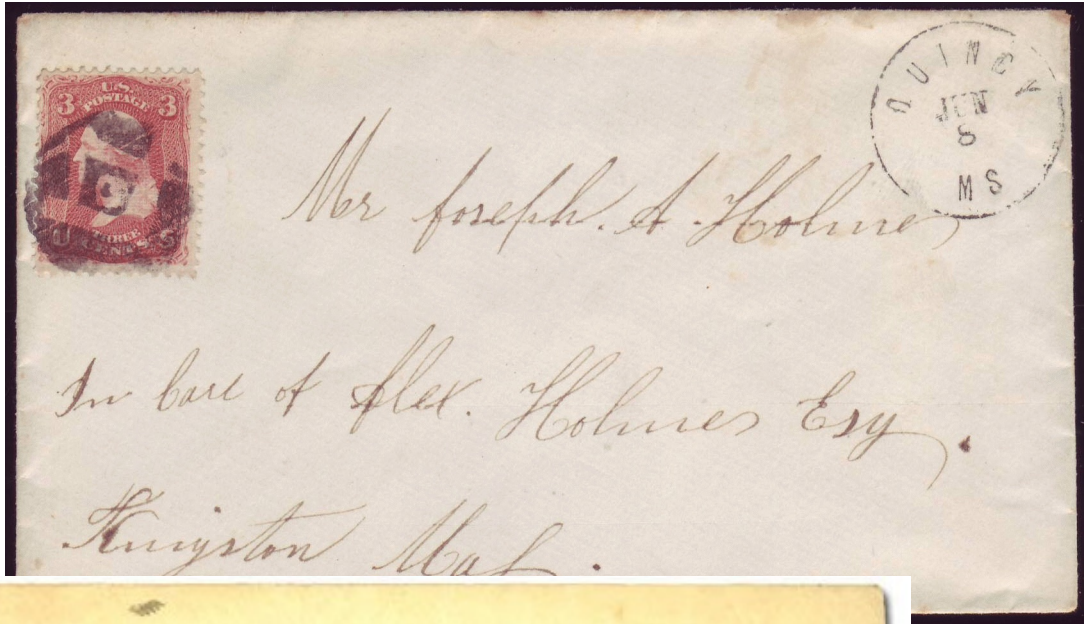 U.S.
POSTAGE
3 3
THREE
CENTS
QUINCY
JUN
8
MS
Mr Joseph. A. Holmes
In Care of Alex. Holmes Esq.
Kingston Mas.